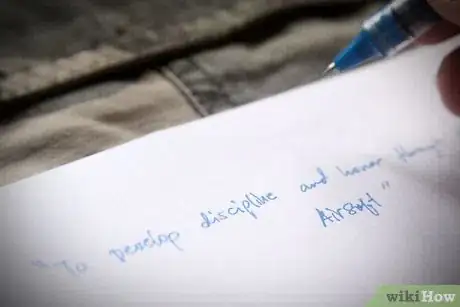 "To develop discipline and honor through
Airsoft"
wikiHow